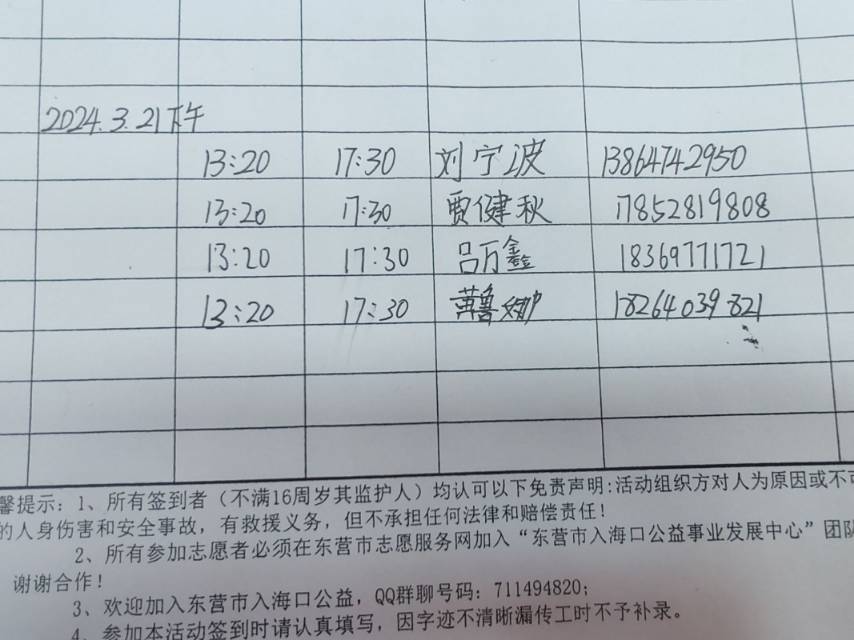 2024.3.21下午
13:20 17:30 刘宁波 13864742950
13:20 17:30 贾健秋 17852819808
13:20 17:30 吕万鑫 18369771721
13:20 17:30 黄鲁 18264039821
馨提示：1、所有签到者（不满16周岁其监护人）均认可以下免责声明：活动组织方对人为原因或不可
的人身伤害和安全事故，有救援义务，但不承担任何法律和赔偿责任！
2、所有参加志愿者必须在东营市志愿服务网加入“东营市入海口公益事业发展中心”团队
谢谢合作！
3、欢迎加入东营市入海口公益，QQ群聊号码：711494820；
4、参加本活动签到时请认真填写，因字迹不清晰漏传工时不予补录。